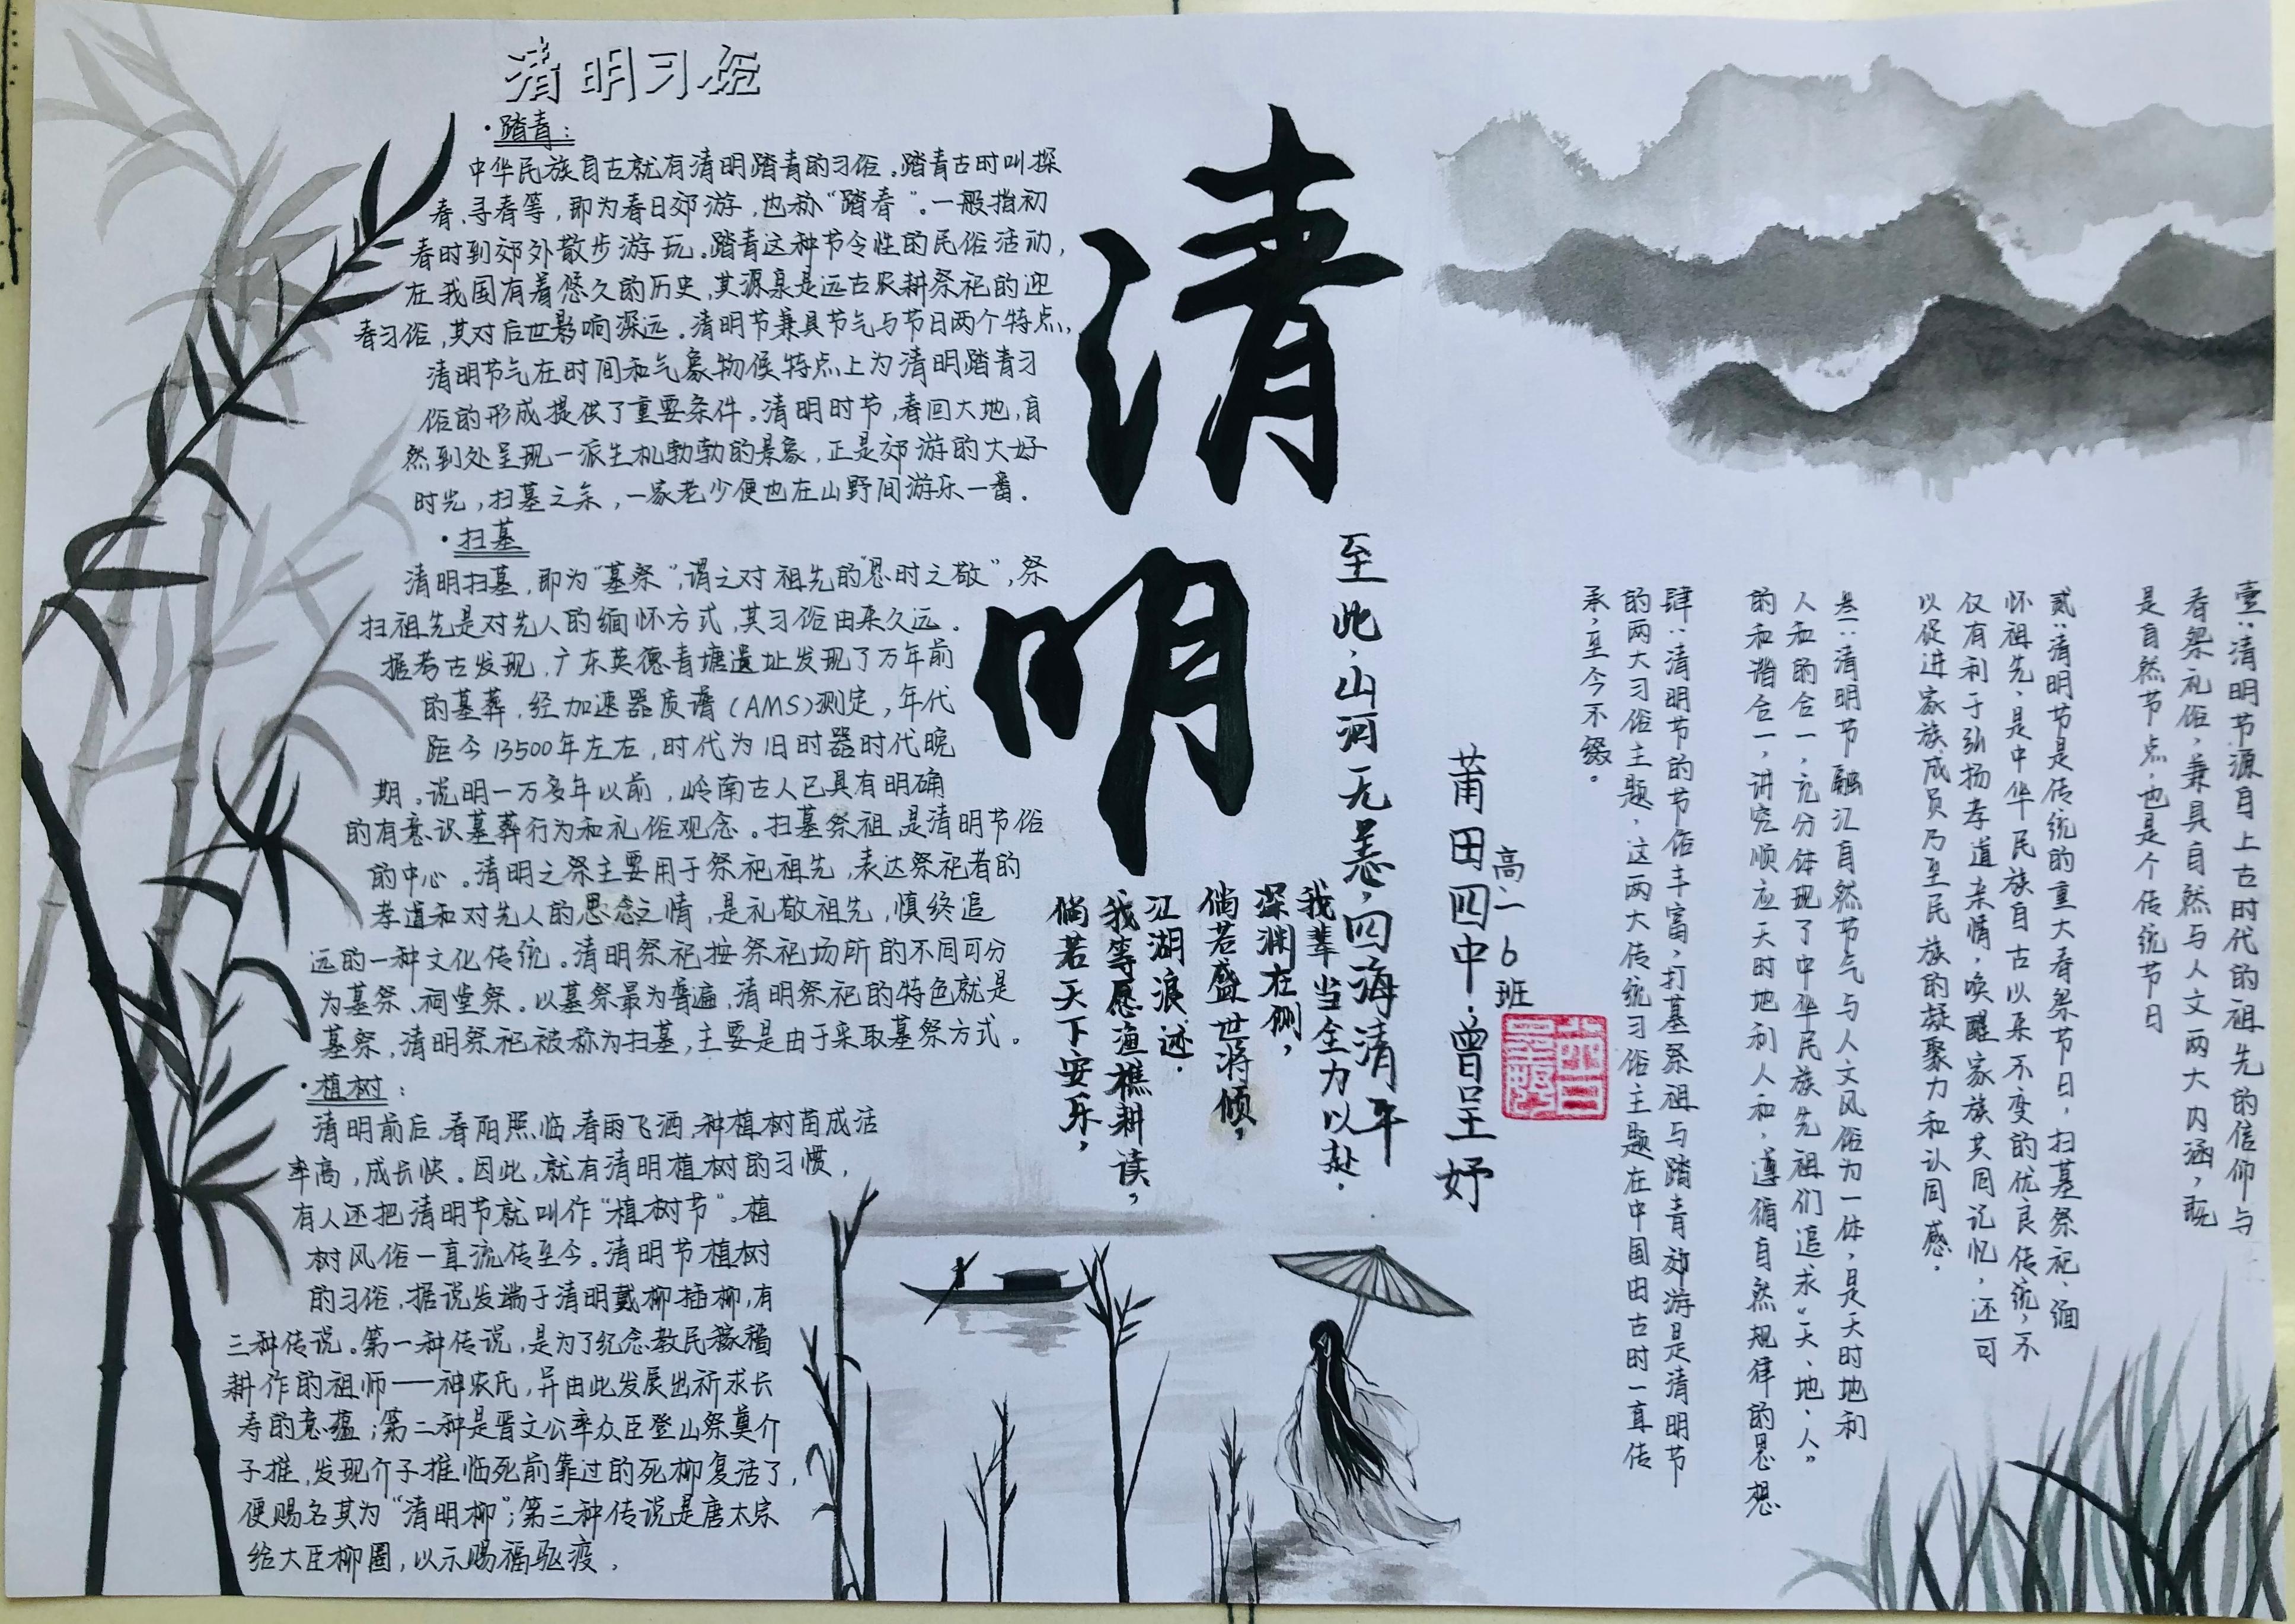 清明习俗
·踏青：
中华民族自古就有清明踏青的习俗。踏青古时叫探
春、寻春等，即为春日郊游，也称“踏春”。一般指初
春时到郊外散步游玩。踏青这种节令性的民俗活动，
在我国有着悠久的历史，其源泉是远古农耕祭祀的迎
春习俗，其对后世影响深远。清明节兼具节气与节日两个特点，
清明节气在时间和气象物候特点上为清明踏青习
俗的形成提供了重要条件。清明时节，春回大地，自
然到处呈现一派生机勃勃的景象，正是郊游的大好
时光，扫墓之余，一家老少便也在山野间游乐一番。
·扫墓
清明扫墓，即为“墓祭”，谓之对祖先的“思时之敬”，祭
扫祖先是对先人的缅怀方式，其习俗由来久远。
据考古发现，广东英德青塘遗址发现了万年前
的墓葬，经加速器质谱（AMS）测定，年代
距今13500年左右，时代为旧时器时代晚
期。说明一万多年以前，岭南古人已具有明确
的有意识墓葬行为和礼俗观念。扫墓祭祖，是清明节俗
的中心。清明之祭主要用于祭祀祖先，表达祭祀者的
孝道和对先人的思念之情，是礼敬祖先，慎终追
远的一种文化传统。清明祭祀按祭祀场所的不同可分
为墓祭、祠堂祭。以墓祭最为普遍，清明祭祀的特色就是
墓祭，清明祭祀被称为扫墓，主要是由于采取墓祭方式。
·植树：
清明前后，春阳照临，春雨飞洒，种植树苗成活
率高，成长快。因此，就有清明植树的习惯，
有人还把清明节就叫作“植树节”。植
树风俗一直流传至今。清明节植树
的习俗，据说发端于清明戴柳插柳，有
三种传说。第一种传说，是为了纪念教民稼穑
耕作的祖师——神农氏，并由此发展出祈求长
寿的意蕴；第二种是晋文公率众臣登山祭奠介
子推，发现介子推临死前靠过的死柳复活了，
便赐名其为“清明柳”；第三种传说是唐太宗
给大臣柳圈，以示赐福驱疫。
清明
至此，山河无恙，四海清平
我辈当全力以赴．
深渊在侧，
倘若盛世将倾，
江湖浪迹．
我等愿渔樵耕读，
倘若天下安乐，
莆田四中：曾呈妤
高二6班
壹：清明节源自上古时代的祖先的信仰与
春祭礼俗，兼具自然与人文两大内涵，既
是自然节点，也是个传统节日
贰：清明节是传统的重大春祭节日，扫墓祭祀、缅
怀祖先，是中华民族自古以来不变的优良传统，不
仅有利于弘扬孝道亲情，唤醒家族共同记忆，还可
以促进家族成员乃至民族的凝聚力和认同感．
叁：清明节融汇自然节气与人文风俗为一体，是天时地利
人和的合一，充分体现了中华民族先祖们追求“天、地、人”
的和谐合一，讲究顺应天时地利人和、遵循自然规律的思想
肆：清明节的节俗丰富，扫墓祭祖与踏青郊游是清明节
的两大习俗主题，这两大传统习俗主题在中国由古时一直传
承，至今不缀。